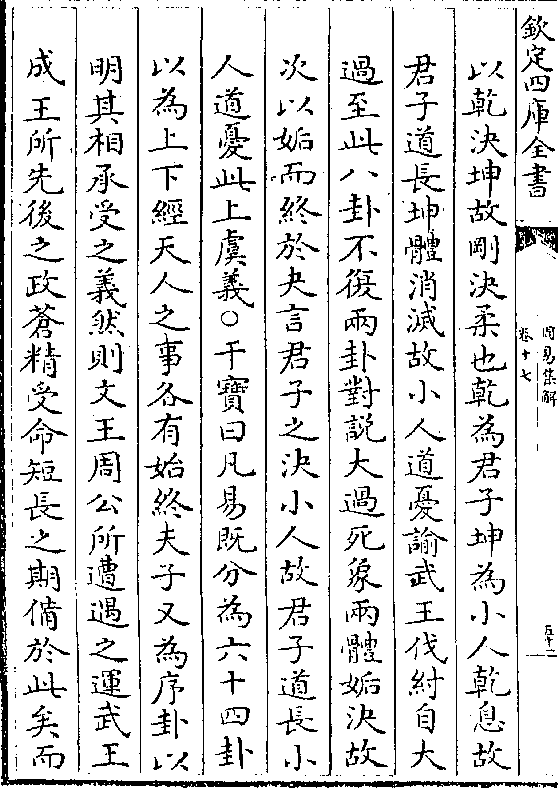 欽定四庫全書
周易集解
卷十七
五十二
以乾決坤故剛決柔也乾為君子坤為小人乾息故
君子道長坤體消滅故小人道憂諭武王伐紂自大
過至此八卦不復兩卦對說大過死象兩體姤決故
次以姤而終於夬言君子之決小人故君子道長小
人道憂此上虞義○干寶曰凡易既分為六十四卦
以為上下經天人之事各有始終夫子又為序卦以
明其相承受之義然則文王周公所遭遇之運武王
成王所先後之政蒼精受命短長之期備於此矣而